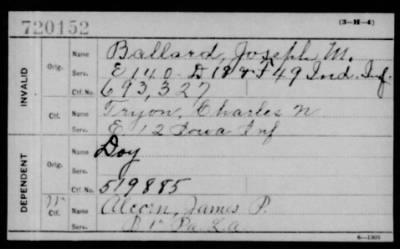 720152 (3-H-4)
INVALID
Orig. Name Ballard, Joseph M.
Serv. E 140 D 18 & F 49 Ind. Inf.
Ctf. No. 693,327
Ctf. Name Tryon, Charles N
Serv. E 12 Iowa Inf
DEPENDENT
Orig. Name Day
Serv.
Ctf. No. 519885
W Ctf. Name Alcorn, James P.
Serv. Pa. L.a.
6-1305